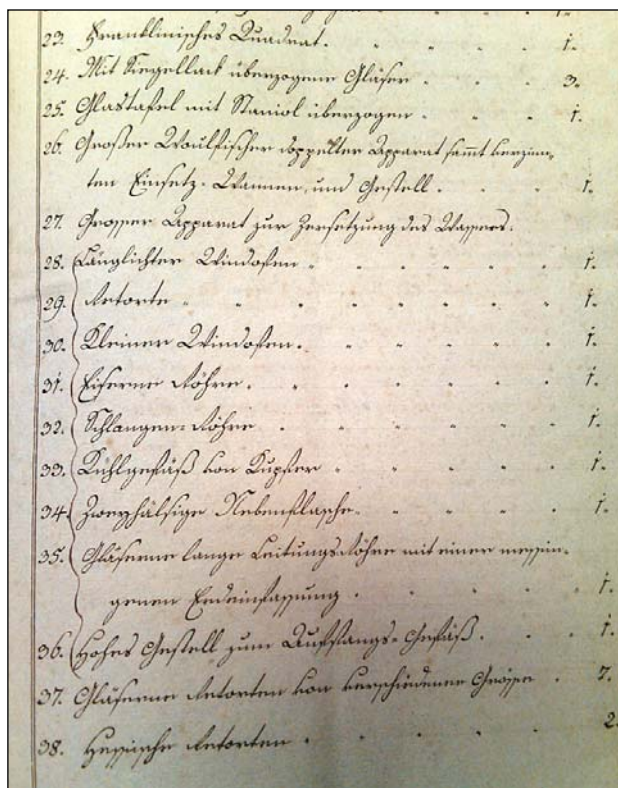 23. Franklinisches Quadrat. " " " " 1.
24. Mit Siegellack überzogene Gläser. " " " 3.
25. Glastafel mit Staniol überzogen. " " " 1.
26. Großer Woulfischer doppelter Apparat sammt verzinn-
ten Einsetz-Wannen, und Gestell. " " " 1.
27. Grosser Apparat zur Zersetzung des Wassers.
28. Länglichter Windofen " " " " " " 1.
29. Retorte " " " " " " " " 1.
30. Kleiner Windofen. " " " " " " 1.
31. Eiserne Röhre. " " " " " " " 1.
32. Schlangen-Röhre " " " " " " 1.
33. Kühlgefäß von Kupfer " " " " " 1.
34. Zweyhälsige Nebenflasche. " " " " 1.
35. Gläserne lange Leitungs-Röhre mit einer messin-
genen Endeinfassung " " " " " " 1.
36. Hohes Gestell zum Auffangs-Gefäß. " " 1.
37. Gläserne Retorten von verschiedener Grösse " 7.
38. Hessische Retorten " " " " " " 2.